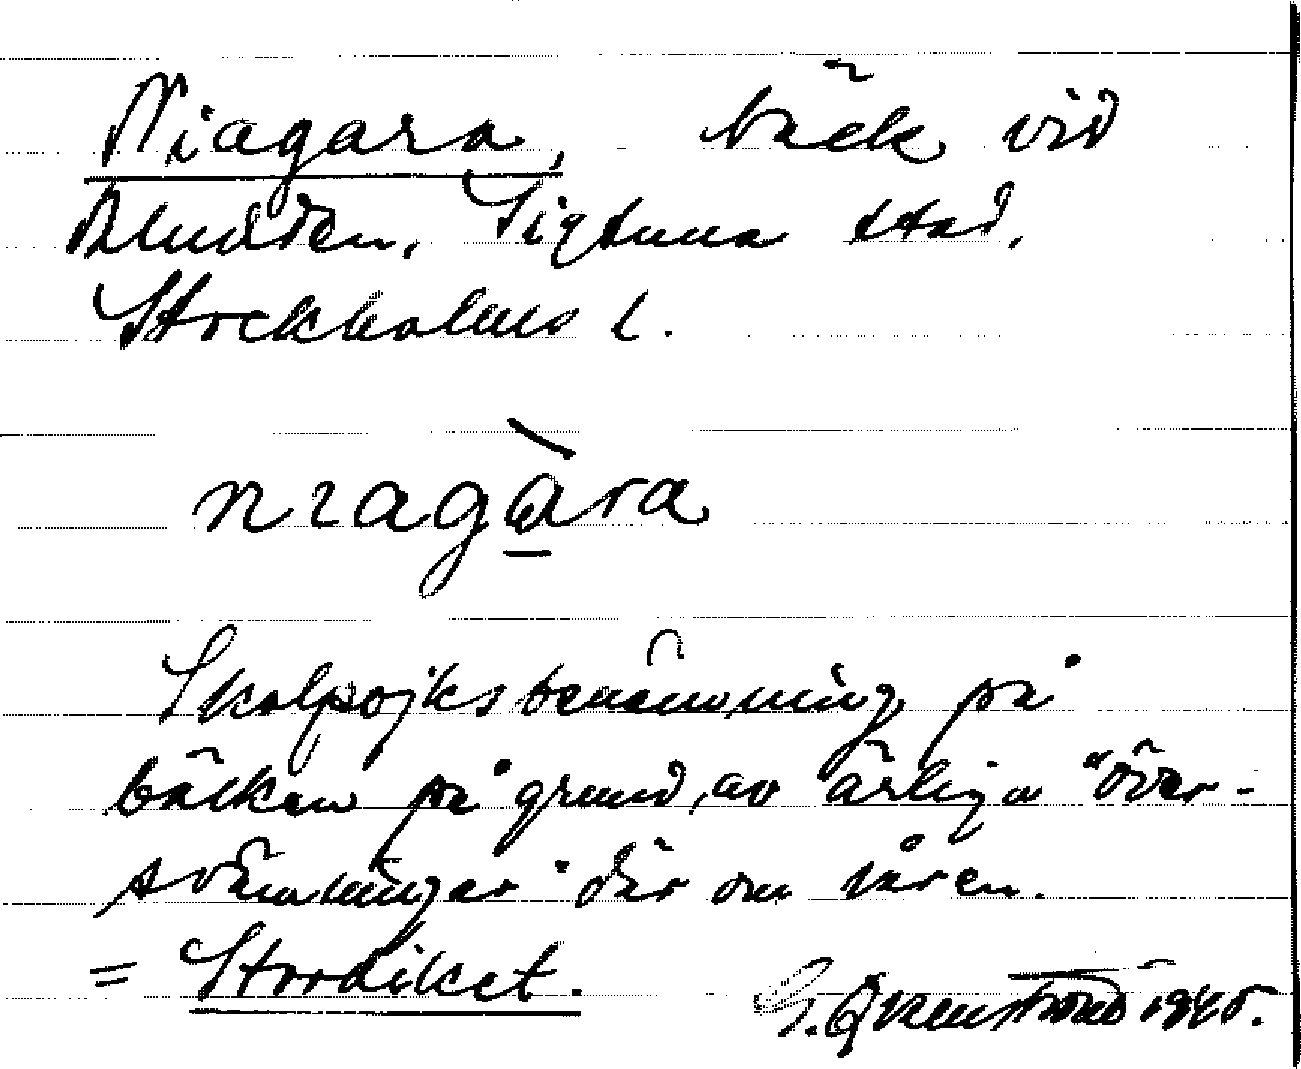 Niagara, bäck vid
Bludden. Sigtuna stad.
Stockholms l.
nıagàra
Skolpojksbenämning på
bäcken på grund av årliga "över-
svämningar" där om våren.
= Stordiket.
G. 1940.